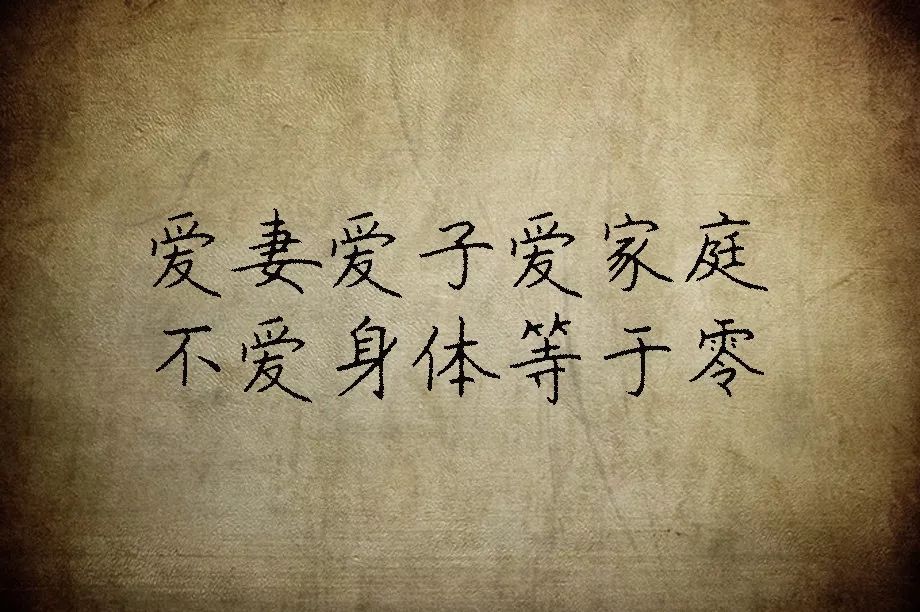 爱妻爱子爱家庭
不爱身体等于零